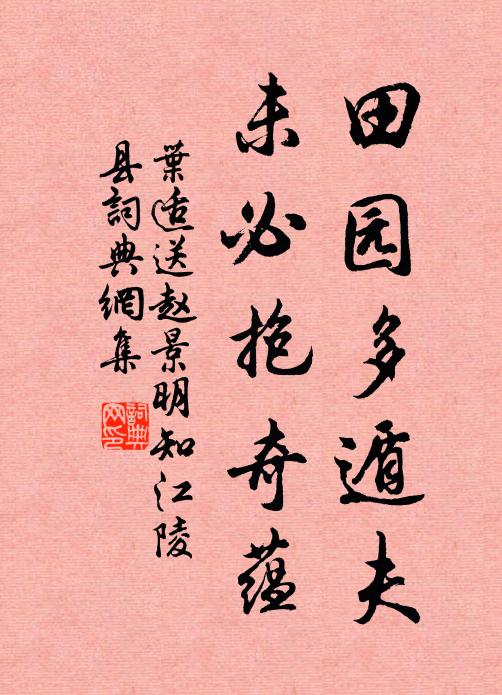 田园多遁夫
未必抱奇蕴
葉适送赵景明知江陵
县詞典網集
詞典
网印